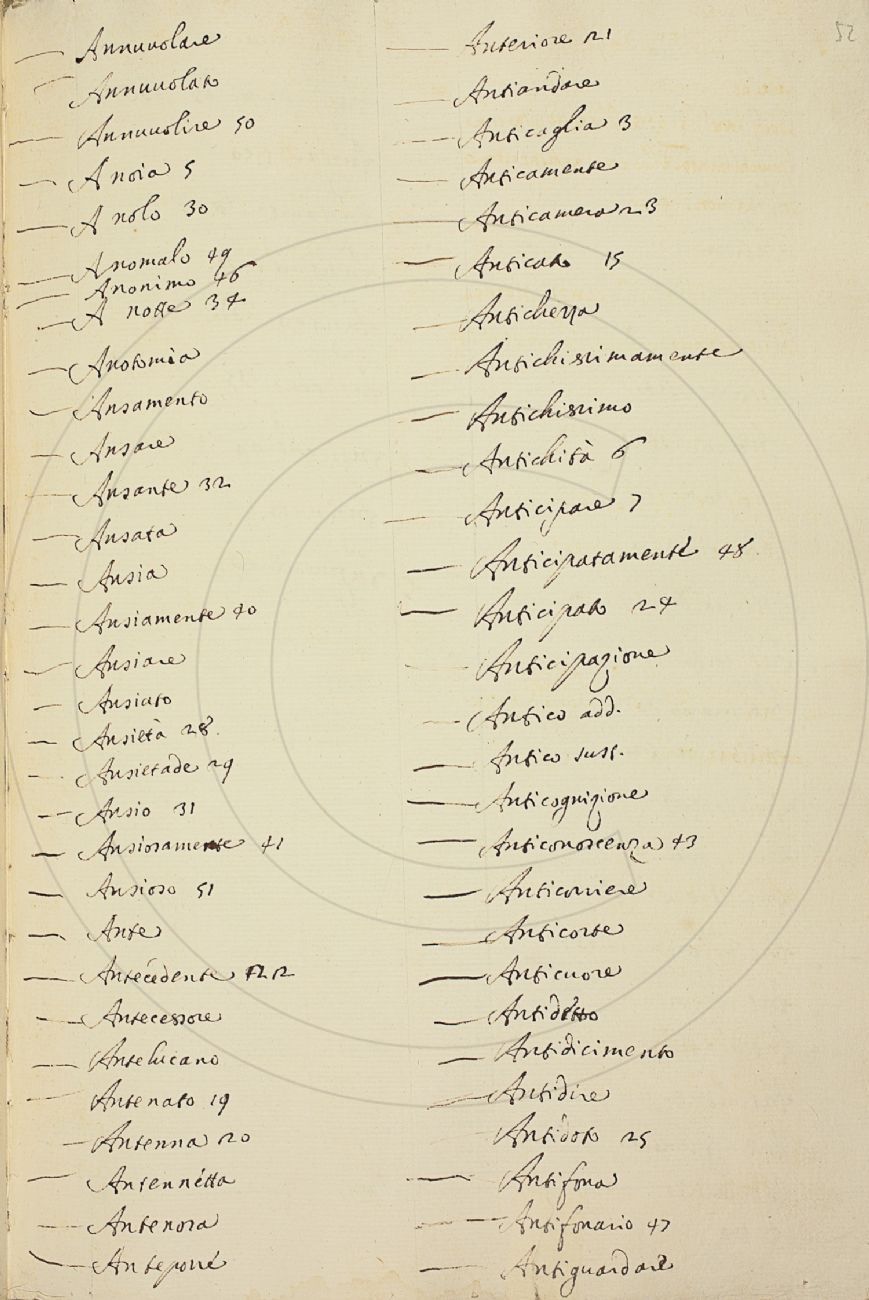 52
Annuvolare
Annuvolato
Annuvolire 50
A noia 5
A nolo 30
Anomalo 49
Anonimo 46
A notte 34
Anotomia
Ansamento
Ansare
Ansante 32
Ansata
Ansia
Ansiamente 40
Ansiare
Ansiato
Ansietà 28.
Ansietade 29
Ansio 31
Ansiosamente 41
Ansioso 51
Ante
Antecedente
Antecessore
Antelucano
Antenato 19
Antenna 20
Antennetta
Antenora
Anteporre
Anteriore 21
Antiandare
Anticaglia 3
Anticamente
Anticamera 23
Anticato 15
Antichezza
Antichissimamente
Antichissimo
Antichità 6
Anticipare 7
Anticipatamente 48.
Anticipato 24
Anticipazione
Antico add.
Antico sust.
Anticognizione
Anticonoscenza 43
Anticorriere
Anticorte
Anticuore
Antidetto
Antidicimento
Antidire
Antidoto 25
Antifona
Antifonario 47
Antiguardare